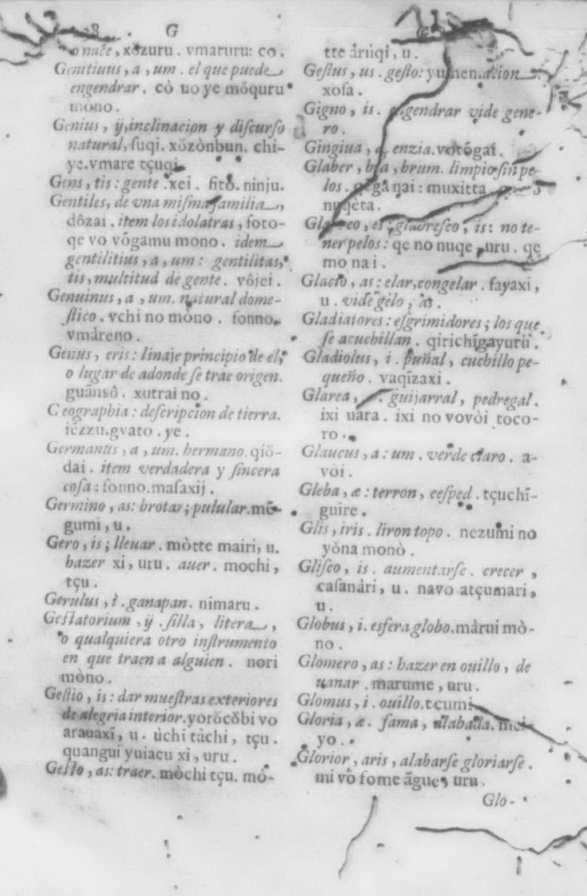 G
o nace, xŏzuru. vmaruru: co.
Genitiuus, a, um. el que puede
engendrar. cò no ye mŏquru
mono.
Genius, ÿ, inclinacion y discurso
natural, suqi. xŏzònbun. chi-
ye. vmare tçuqi.
Gens, tis: gente. xei. fitŏ. ninju.
Gentiles, de vna misma familia,
dôzai. item los idolatras, foto-
qe vo vŏgamu mono. idem
gentilitius, a, um: gentilitas,
tis, multitud de gente. vôjei.
Genuinus, a, um. natural dome-
stico. vchi no mono. fonno.
vmáreno.
Genus, eris: linaje principio de el,
o lugar de adonde se trae origen.
guãnsô. xutrai no.
Ceographia: descripcion de tierra.
iĕzzu. gvato. ye.
Germanus, a, um. hermano. qiŏ-
dai. item verdadera y sincera
cosa: fonno. masaxij.
Germino, as: brotar; pulular. mĕ-
gumi, u.
Gero, is; lleuar. mòtte mairi, u.
hazer xi, uru. auer. mochi,
tçu.
Gerulus, i. ganapan. nimaru.
Gestatorium, ÿ. silla, litera,
o qualquiera otro instrumento
en que traen a alguien. nori
mòno.
Gestio, is: dar muestras exteriores
de alegria interior. yorŏcŏbi vo
arauaxi, u. ùchi tàchi, tçu.
quangui yuiacu xi, uru.
Gesto, as: traer. mòchi tçu. mó-
tte àruqi, u.
Gestus, us. gesto:
xosa.
Gigno, is. engendrar vide gene-
ro.
Gingiua, æ. enzia. votŏgai.
Glaber, bra, brum. limpio sin pe-
los. qe ga nai: muxitta
nuqeta.
glabresco, is: no te-
ner pelos: qe no nuqe, uru. qe
mo nai.
Glacio, as: elar, congelar. fayaxi,
u. vide gelo, as.
Gladiatores: esgrimidores; los que
se acuchillan. qirichigayurŭ.
Gladiolus, i. puñal, cuchillo pe-
queño. vaqizaxi.
Glarea, æ. guijarral, pedregal.
ixi uara. ixi no vovòi toco-
ro.
Glaucus, a: um. verde claro. a-
vòi.
Gleba, æ: terron, cesped. tçuchĭ-
guire.
Glis, iris. liron topo. nezumi no
yŏna monò.
Glisco, is. aumentarse. crecer,
casanàri, u. navo atçumari,
u.
Globus, i. esfera globo. màrui mò-
no.
Glomero, as: hazer en ouillo, de
uanar. marume, uru.
Glomus, i. ouillo. tçumi
Gloria, æ. fama, alabada. mei-
yo.
Glorior, aris, alabarse gloriarse.
mi vŏ fome ãgue, uru.
Glo-